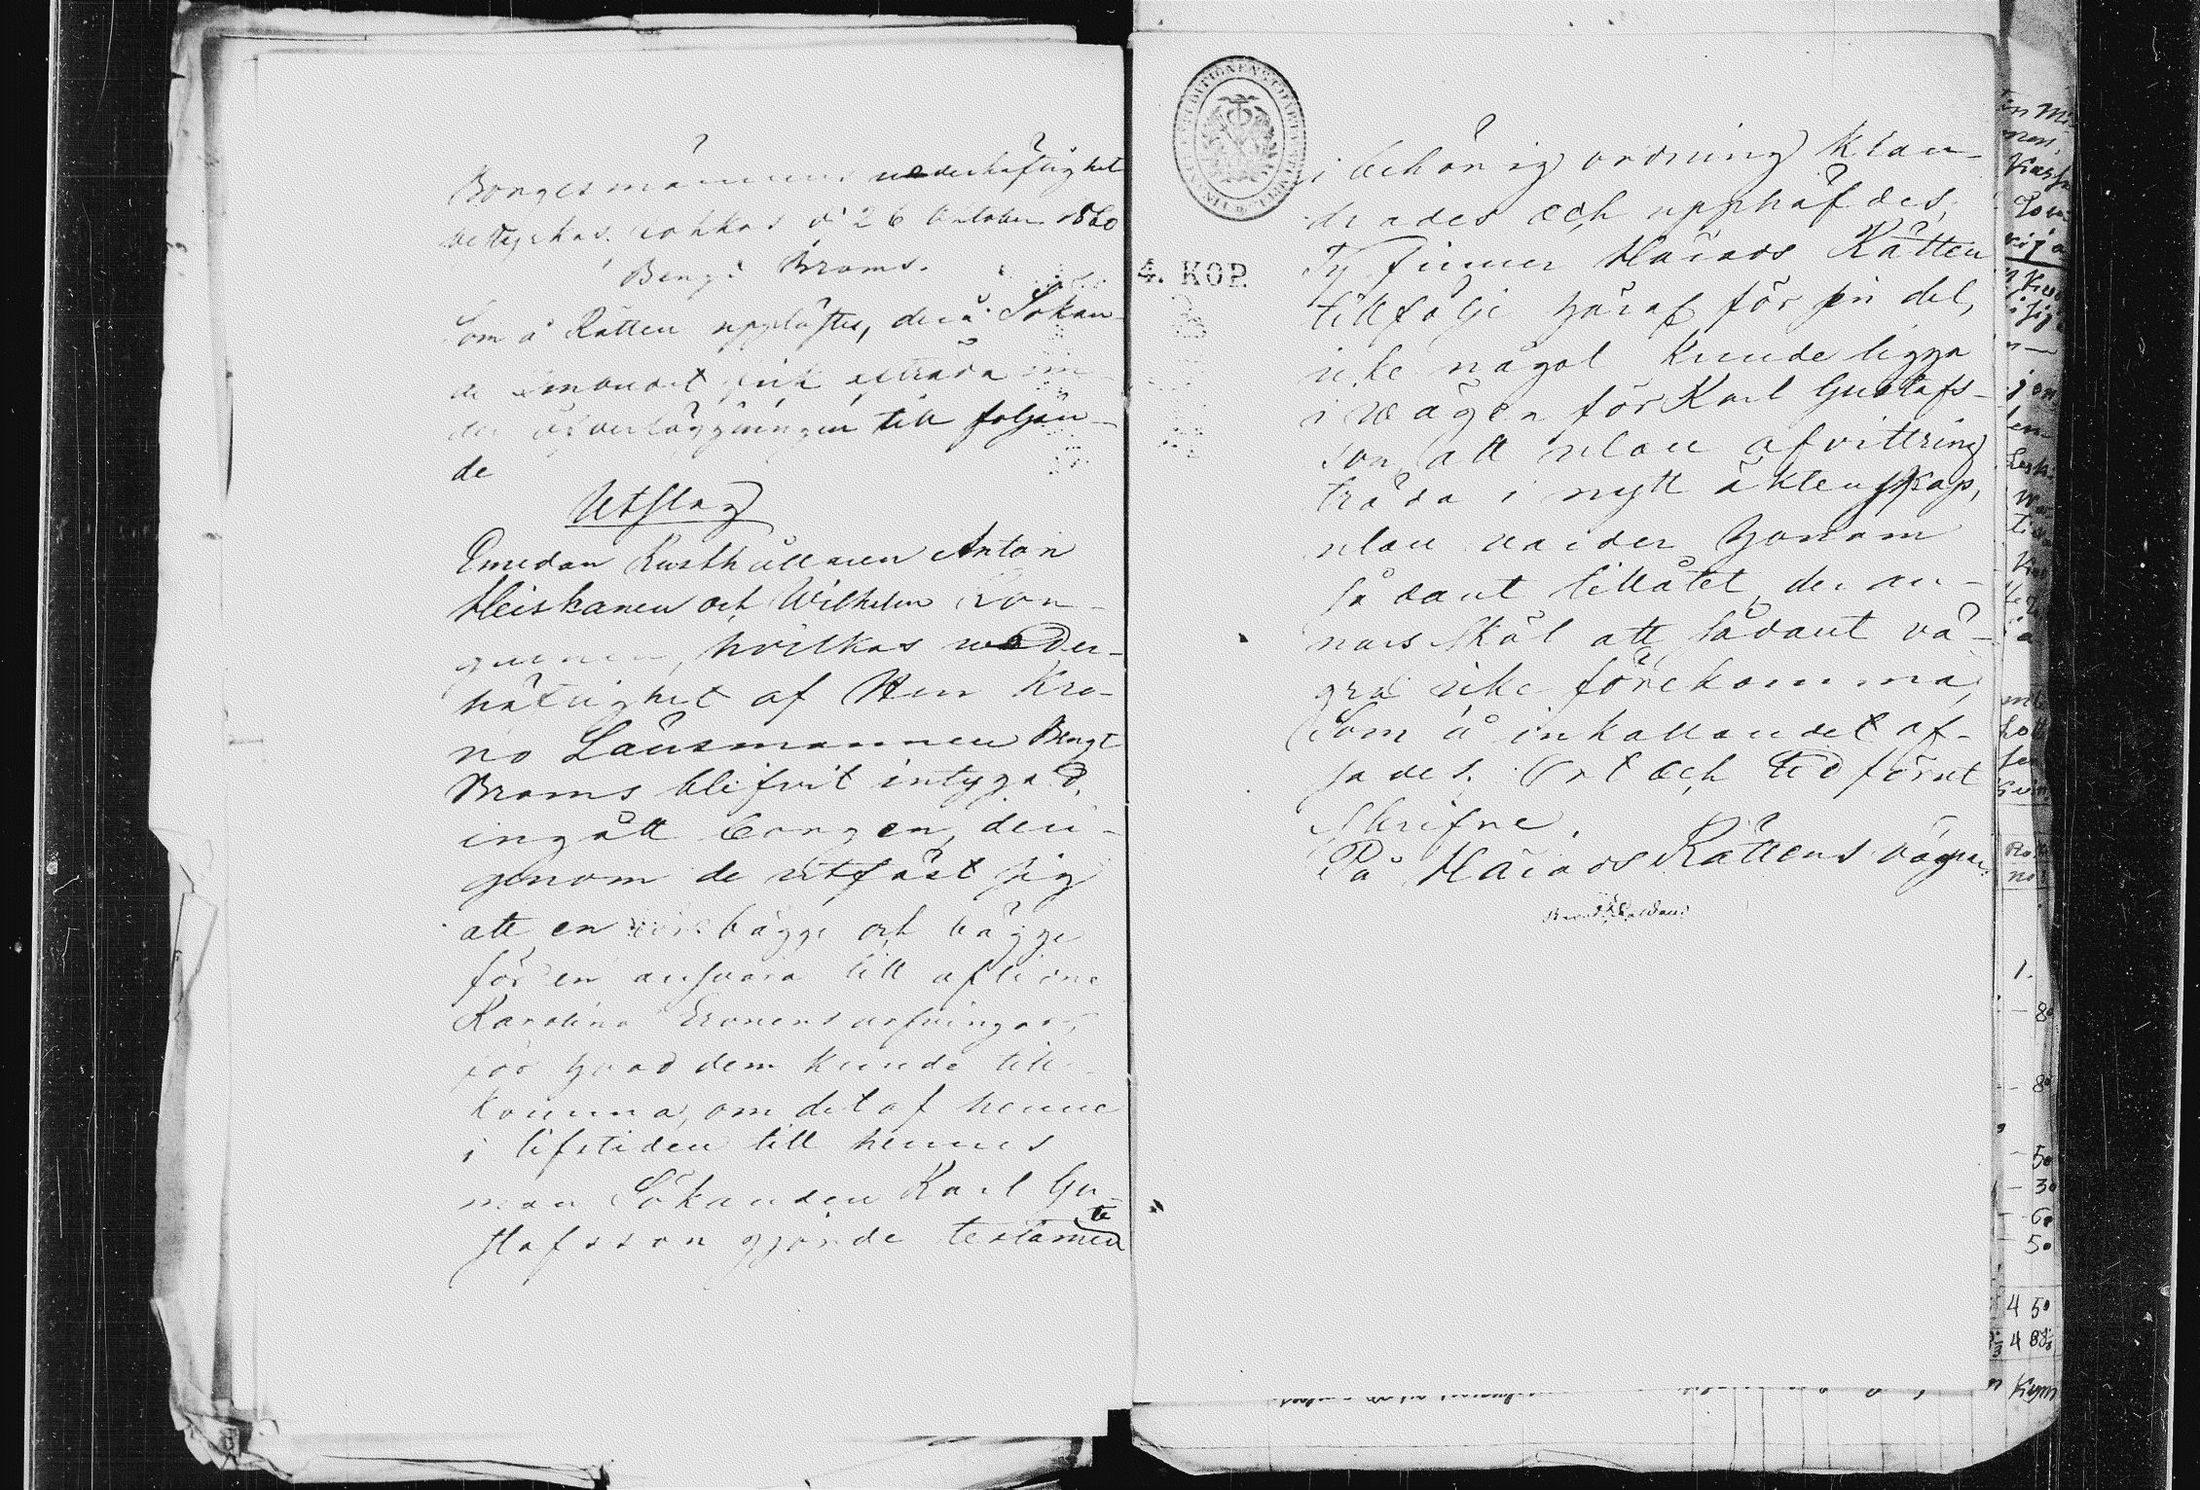 Borgesmännens vederhäftighet
bettyrkas. Jokkas d 26 Oktober 1860
Bengt Broms.
Som å Rätten upplästes, derå Sökan-
de emanert fick afträda un-
der öfverläggningen till följan-
de
Utslag
Emedan Rusthållaren Anton
Heiskanen och Wilhelm Kon-
guinen, hvilkas weder-
häftighet af Herr Kro-
no Länsmannen Bengt
Broms blifvit intygad,
ingått borgen, der-
genom de utfäst sig
att en för bägge och bägge
för en ansvara till aflidne
Karolina Eronens arfvingar,
för hvad dem kunde till-
komma, om det af henne
i lifstiden till hennes
man Sökanden Karl Gu-
stafsson gjorde testamente
4. KOP.
i behörig ordning klan-
drades och upphäfdes;
Ty finner Härads Rätten
tillfölje häraf för sin del,
icke något kunde ligga
i wägen för Karl Gustafs-
son att utan afvittring
träda i nytt äktenskap,
utan varder honom
sådant tillåtet, der an-
nars skäl att sådant vä-
gra icke förekomma;
Som å inkallandet af-
sades. Ort och tid förut
skrifne.
På Härads Rättens vägnar